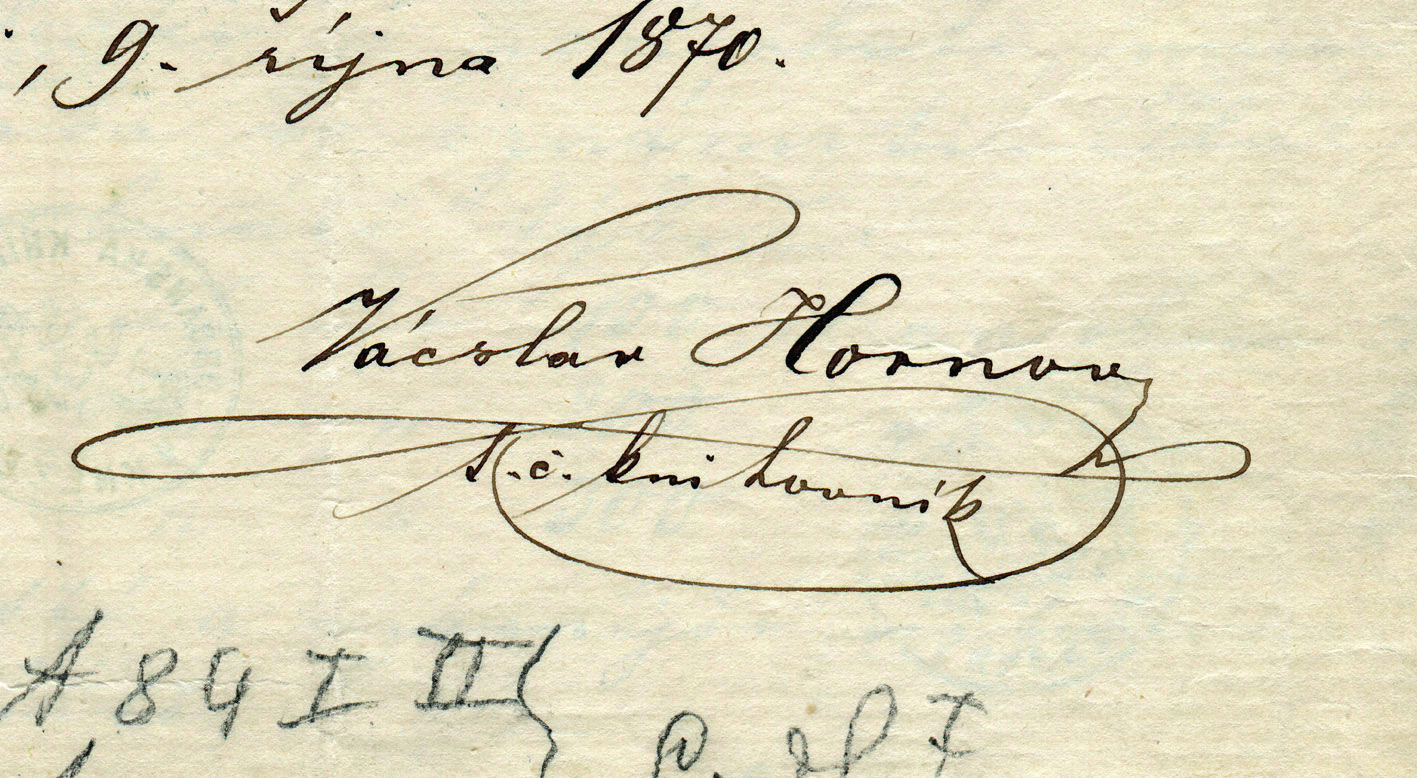 , 9. října 1870.
Vácslav Hornov
t. č. knihovník
A 84 I II